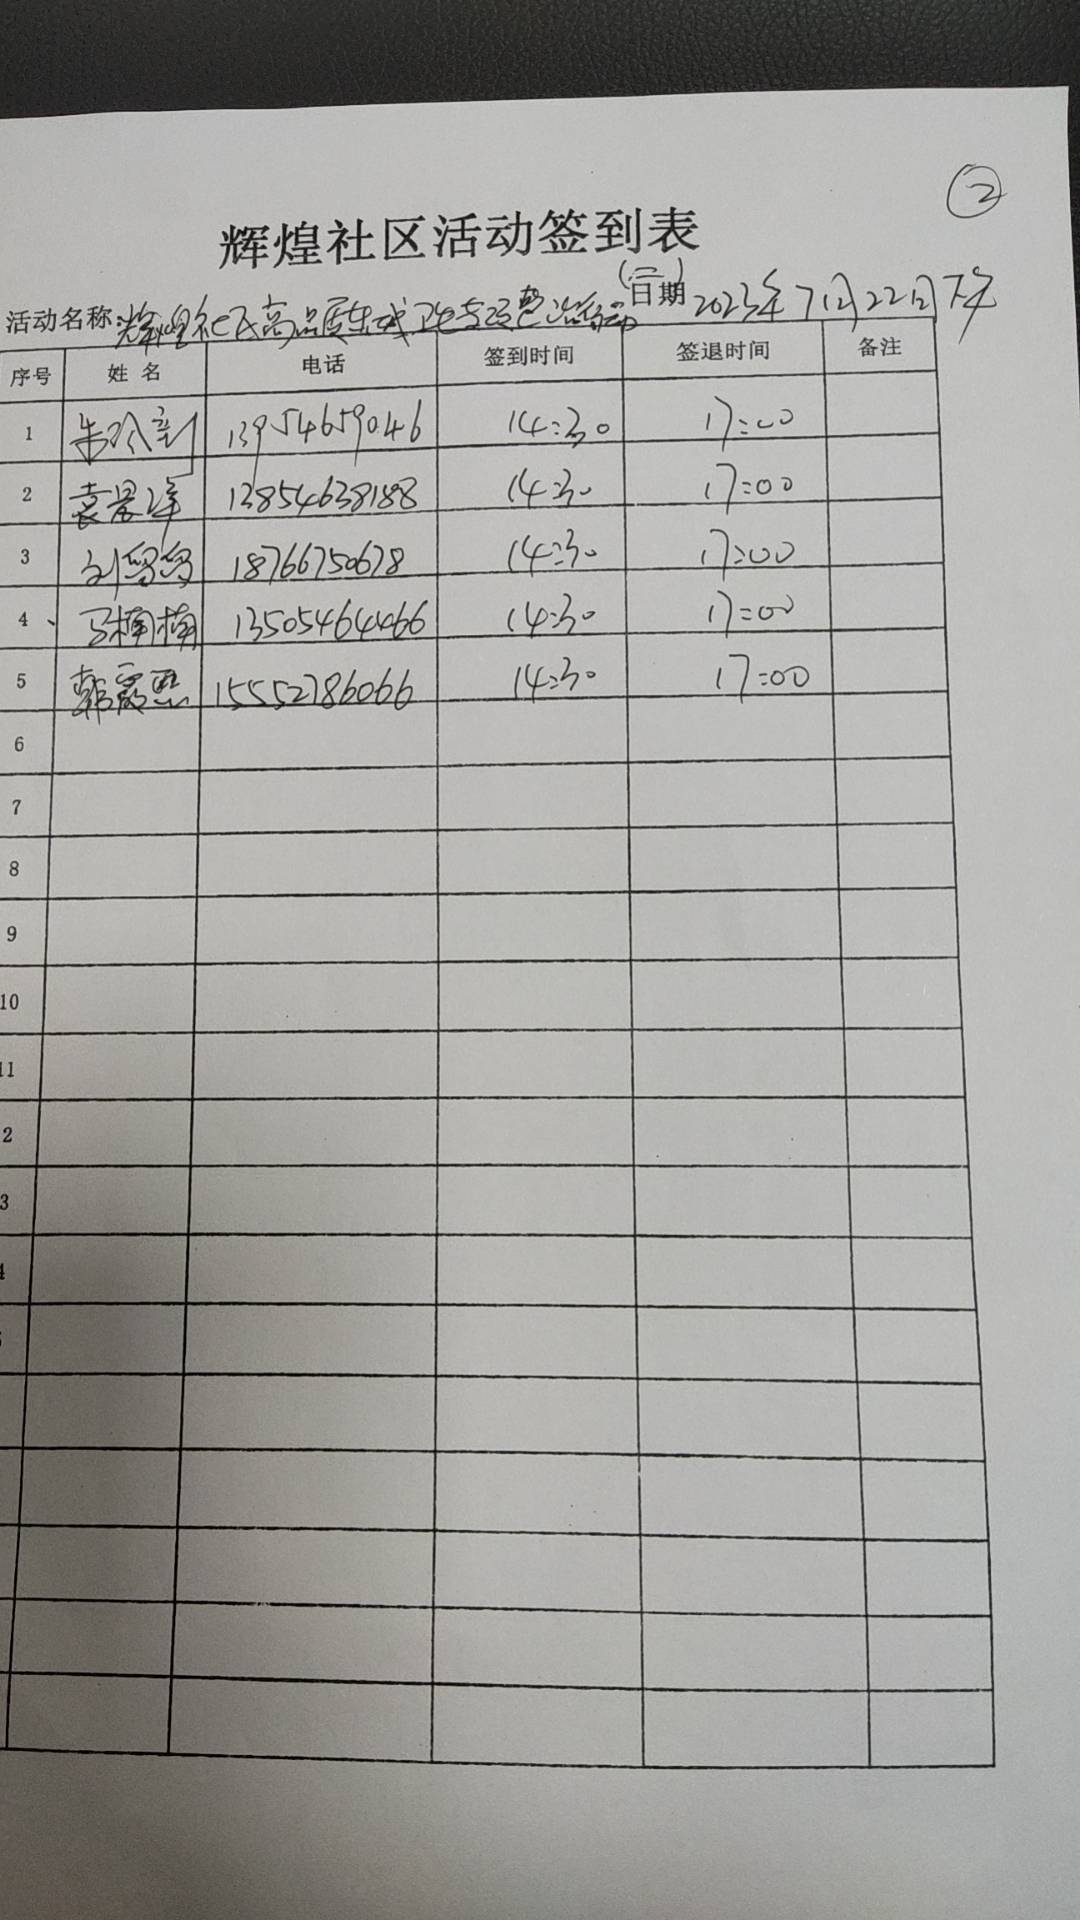 ②
辉煌社区活动签到表
(二)
活动名称:辉煌社区高品质东城卫生专项整治活动 日期 2023年7月22日下午
序号 姓名 电话 签到时间 签退时间 备注
1 朱 13954659046 14:30 17:00
2 袁 13854638188 14:30 17:00
3 刘 18766750678 14:30 17:00
4 马楠楠 13505464466 14:30 17:00
5 韩 15552786066 14:30 17:00
6
7
8
9
10
11
2
3
4